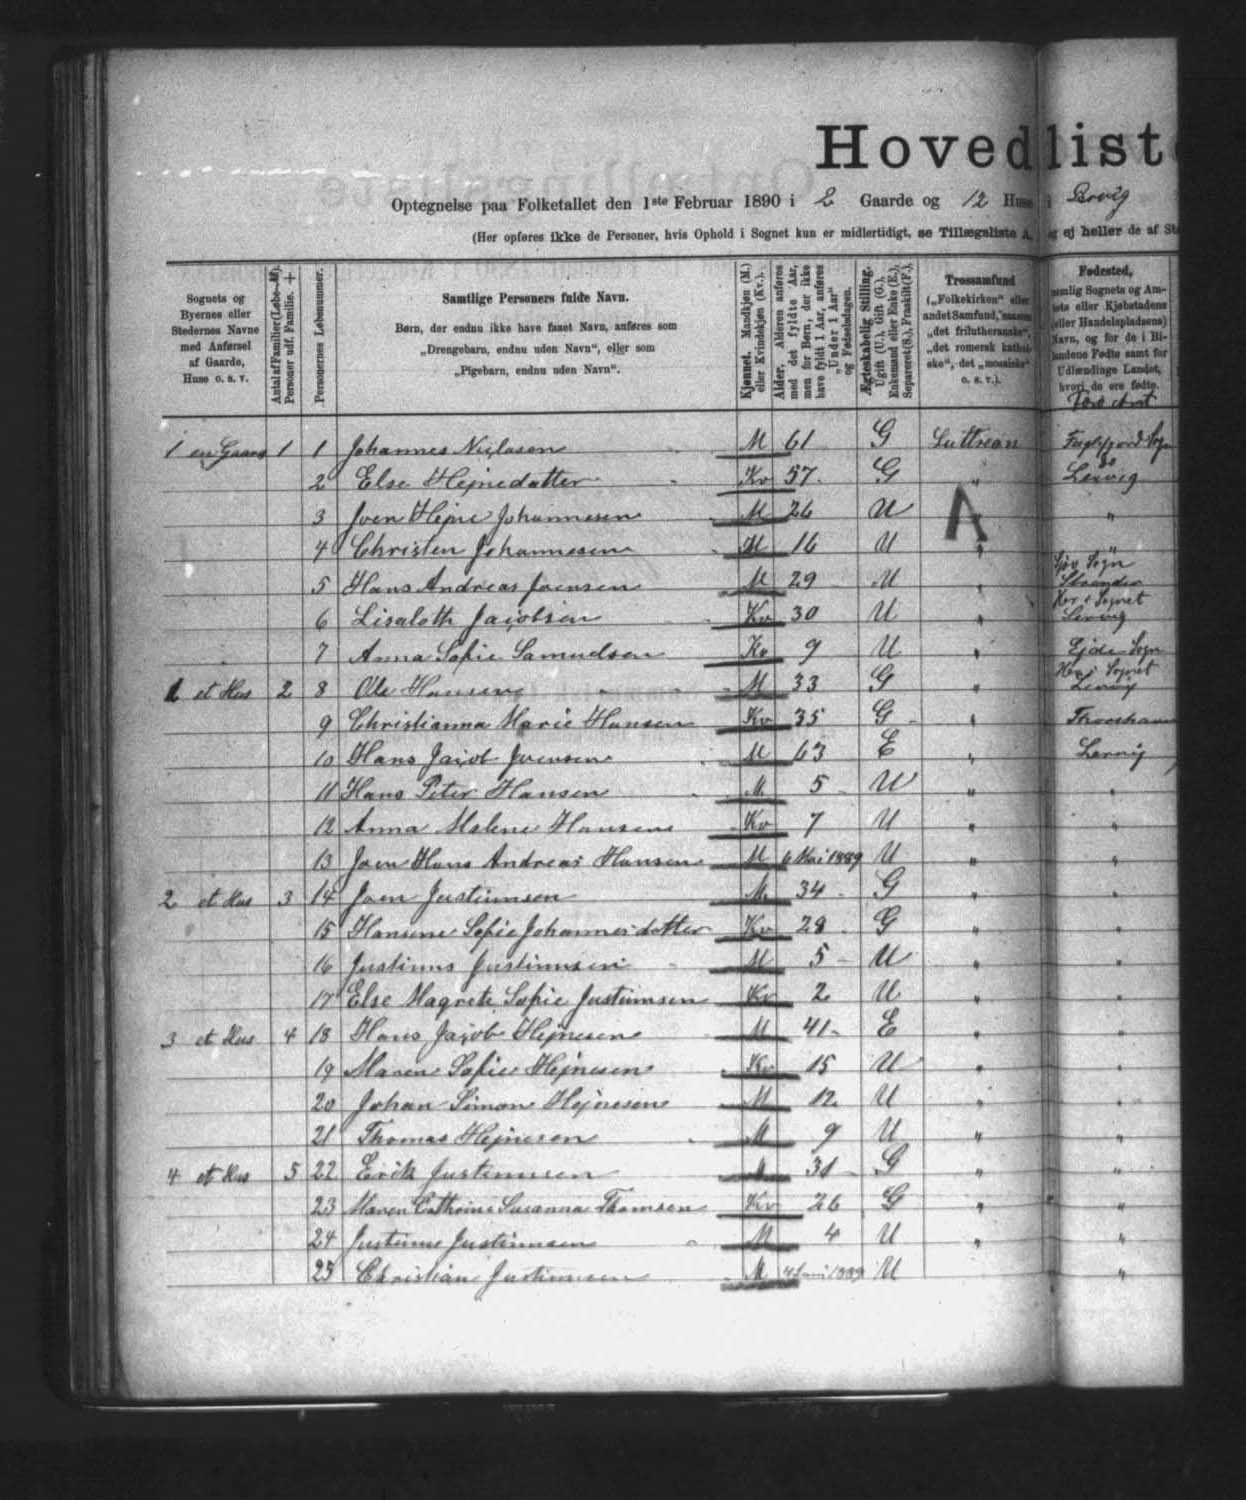 Hovedliste
Optegnelse paa Folketallet den 1ste Februar 1890 i 2 Gaarde og 12 Huse i
(Her opføres ikke de Personer, hvis Ophold i Sognet kun er midlertidigt, se Tillægsliste A, og ej heller de af
Sognets og Byernes eller Stedernes Navne med Anførsel af Gaarde, Huse o. s. v.
Antal af Familier (Løbe-№). Personer udf. Familie. +
Personernes Løbenummer.
Samtlige Personers fulde Navn.
Børn, der endnu ikke have faaet Navn, anføres som
„Drengebarn, endnu uden Navn“, eller som
„Pigebarn, endnu uden Navn“.
Kjønnet. Mandkjøn (M.) eller Kvindekjøn (Kv.).
Alder. Alderen anføres med det fyldte Aar, men for Børn, der ikke have fyldt 1 Aar, anføres „Under 1 Aar“ og Fødselsdagen.
Ægteskabelig Stilling. Ugift (U.), Gift (G.), Enkemand eller Enke (E.), Separeret (S.), Fraskilt (F.).
Trossamfund („Folkekirken“ eller andet Samfund, saasom „det frilutheranske“, „det romersk katholske“, det „mosaiske“ o. s. v.).
Fødested, nemlig Sognets og Amtets eller Kjøbstadens (eller Handelspladsens) Navn, og for de i Bilandene Fødte samt for Udlændinge Landet, hvori de ere fødte.
1 en Gaard 1 1 Johannes Niclasen M 61 G Luttrean
2 Else Hejnedatter Kv 57 G " Lervig
3 Joen Hejne Johannesen M 26 U "
4 Christen Johannesen M 16 U " "
5 Hans Andreas Joensen M 29 U " Sjov Sogn
6 Lisaloth Jacobsen Kv 30 U " Her i Sognet Lervig
7 Anna Sofie Samuelsen Kv 9 U " Ejde Sogn
1 et Hus 2 8 Ole Hansen M 33 G " Her i Sognet Lervig
9 Christianna Marie Hansen Kv 35 G " Thorshavn
10 Hans Jacob Joensen M 63 E " Lervig
11 Hans Peter Hansen M 5 U " "
12 Anna Malene Hansen Kv 7 U " "
13 Joen Hans Andreas Hansen M 6 Mai 1889 U " "
2 et Hus 3 14 Joen Justinusen M 34 G " "
15 Hansine Sofie Johannesdatter Kv 28 G " "
16 Justinus Justinusen M 5 U " "
17 Else Magrete Sofie Justinusen Kv 2 U " "
3 et Hus 4 18 Hans Jacob Hejnesen M 41 E " "
19 Maren Sofie Hejnesen Kv 15 U " "
20 Johan Simon Hejnesen M 12 U " "
21 Thomas Hejnesen M 9 U " "
4 et Hus 5 22 Erik Justinusen M 31 G " "
23 Maren Cathrine Susanna Thomsen Kv 26 G " "
24 Justinus Justinusen M 4 U " "
25 Christian Justinusen M 1889 U "